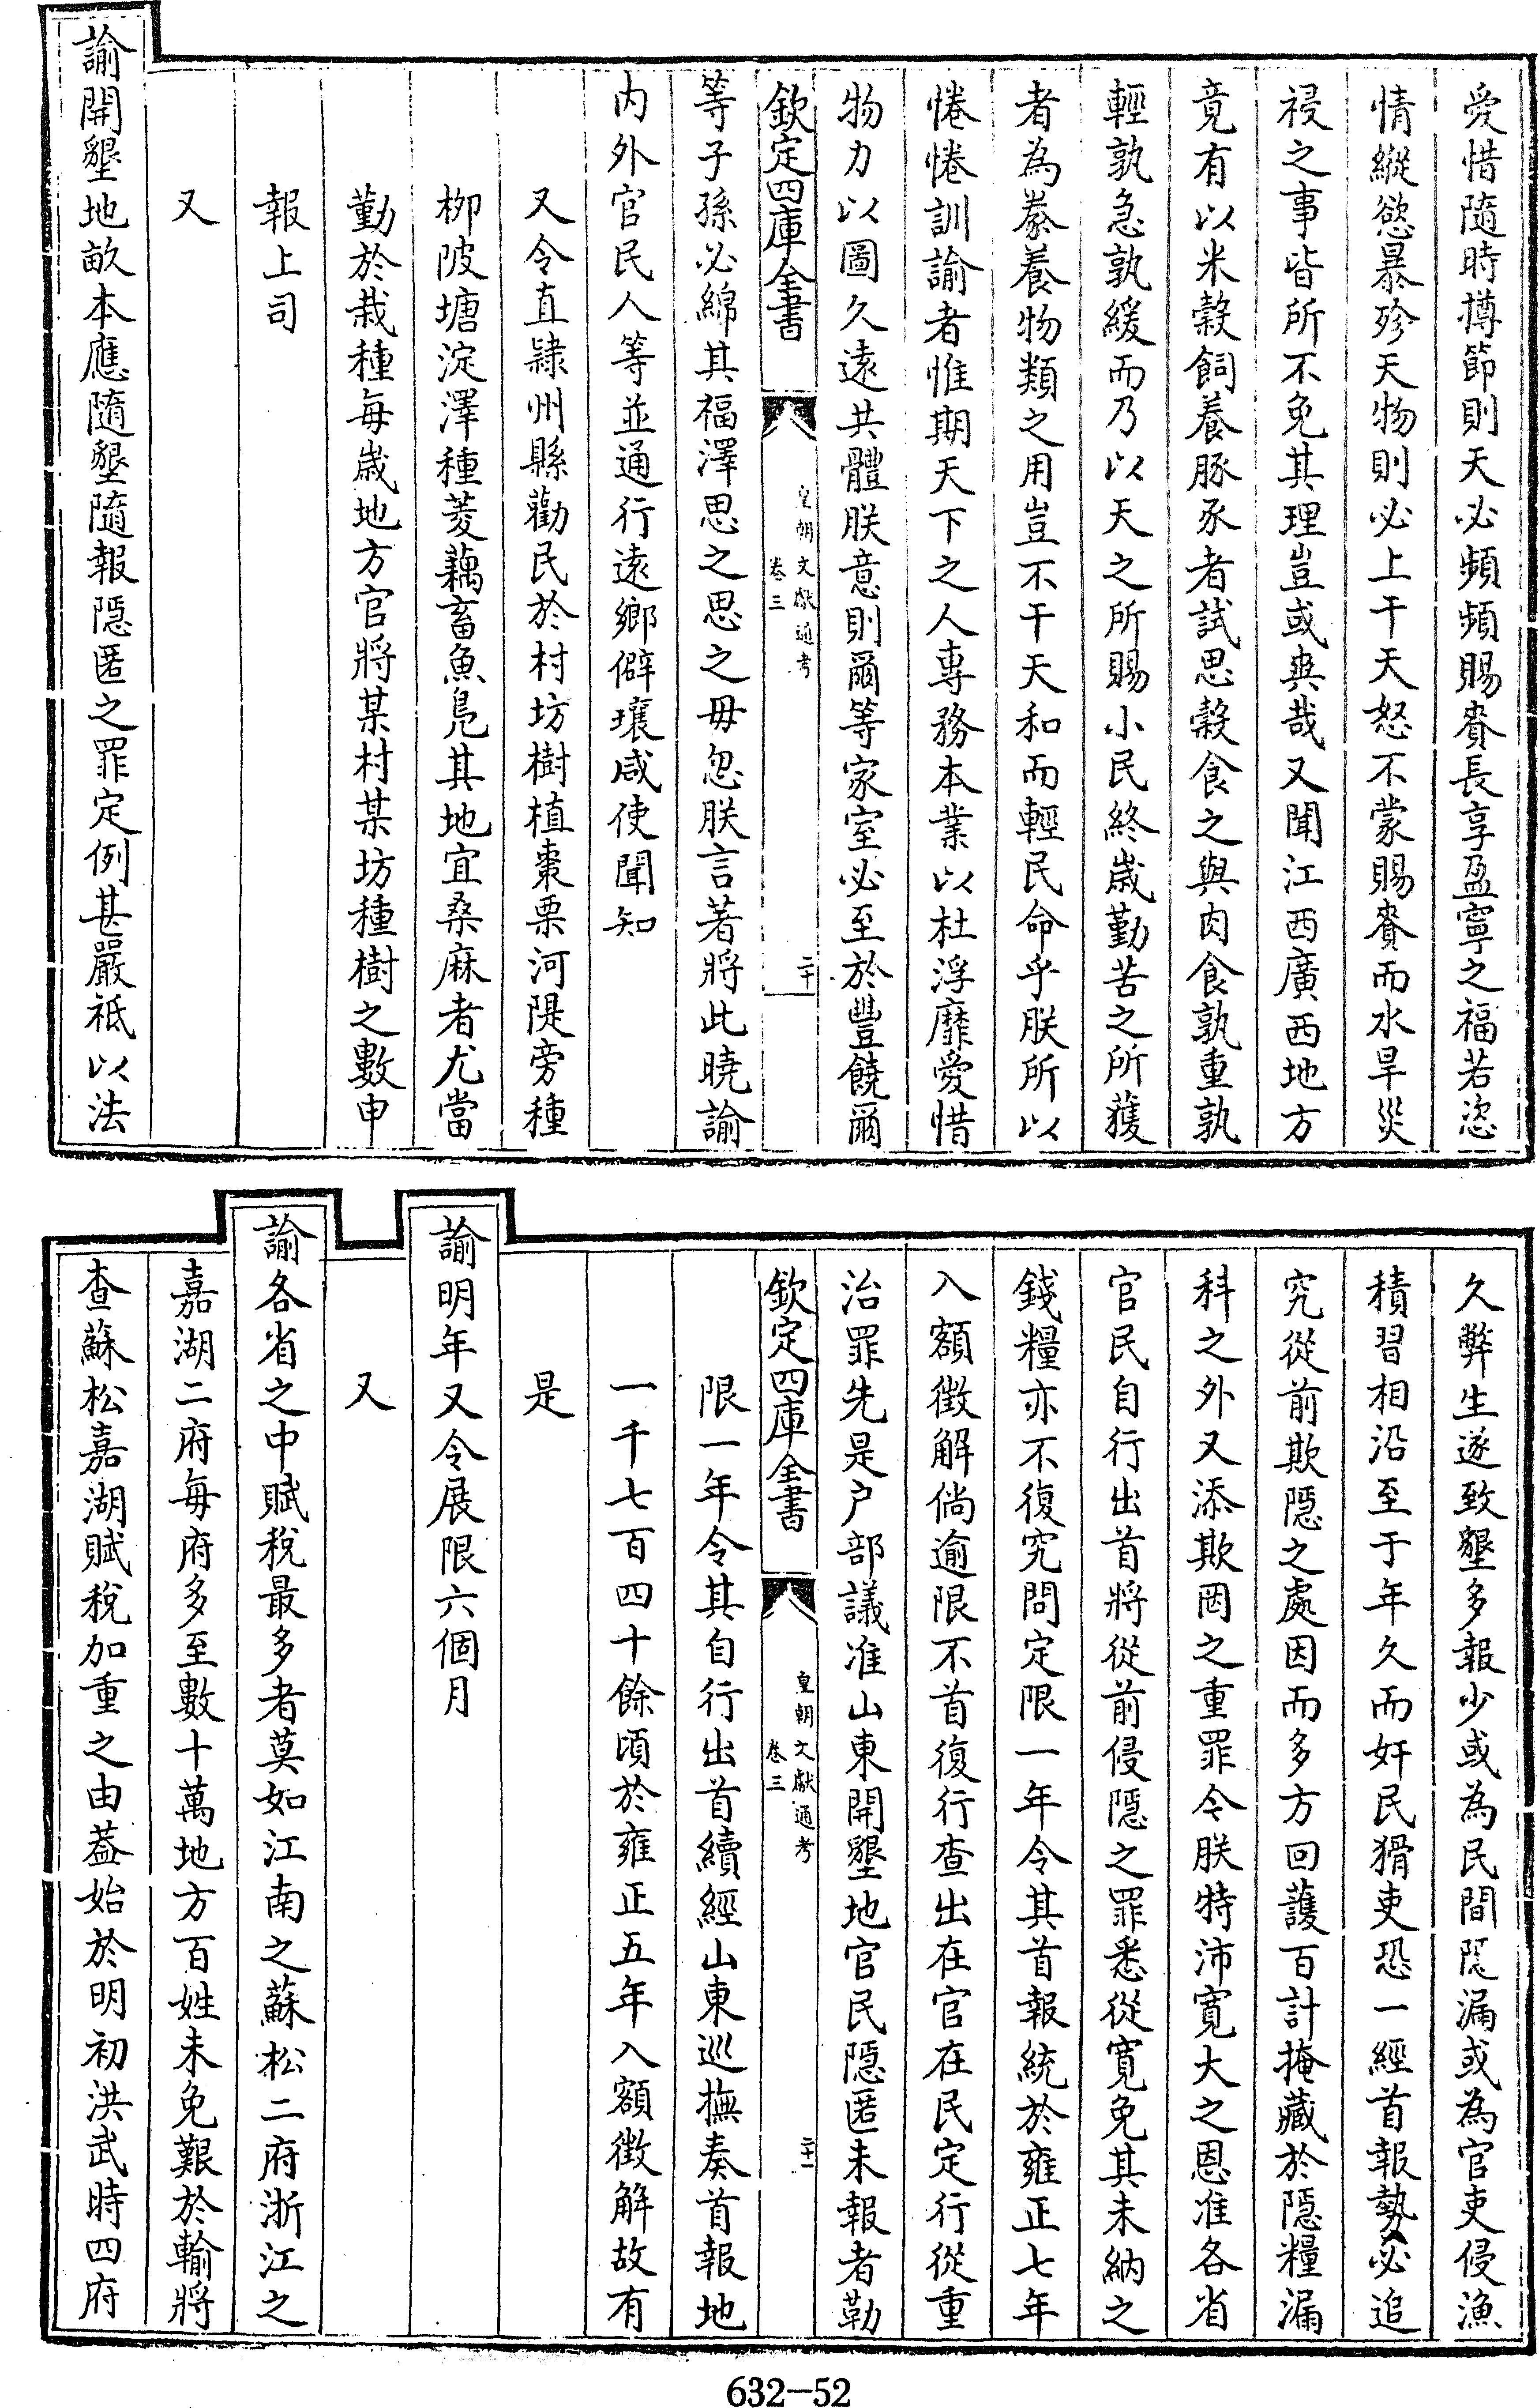 愛惜隨時撙節則天必頻頻賜賚長享盈寧之福若恣
情縱慾暴殄天物則必上干天怒不蒙賜賚而水旱災
祲之事皆所不免其理豈或爽哉又聞江西廣西地方
竟有以米穀飼養豚豕者試思穀食之與肉食孰重孰
輕孰急孰緩而乃以天之所賜小民終嵗勤苦之所獲
者為豢養物類之用豈不干天和而輕民命乎朕所以
惓惓訓諭者惟期天下之人專務本業以杜浮靡愛惜
物力以圖久遠共體朕意則爾等家室必至於豐饒爾
欽定四庫全書
皇朝文獻通考
卷三
二十
等子孫必綿其福澤思之思之毋忽朕言著將此曉諭
内外官民人等並通行遠鄉僻壤咸使聞知
又令直隸州縣勸民於村坊樹植棗栗河隄旁種
柳陂塘淀澤種菱藕畜魚鳧其地宜桑麻者尤當
勤於栽種每嵗地方官將某村某坊種樹之數申
報上司
又
諭開墾地畝本應隨墾隨報隱匿之罪定例甚嚴祗以法
久弊生遂致墾多報少或為民間隱漏或為官吏侵漁
積習相沿至于年久而奸民猾吏恐一經首報勢必追
究從前欺隱之處因而多方回護百計掩藏於隱糧漏
科之外又添欺罔之重罪令朕特沛寛大之恩准各省
官民自行出首將從前侵隱之罪悉從寛免其未納之
錢糧亦不復究問定限一年令其首報統於雍正七年
入額徴解倘逾限不首復行查出在官在民定行從重
治罪先是户部議准山東開墾地官民隱匿未報者勒
欽定四庫全書
皇朝文獻通考
卷三
二十一
限一年令其自行出首續經山東巡撫奏首報地
一千七百四十餘頃於雍正五年入額徴解故有
是
諭明年又令展限六個月
又
諭各省之中賦稅最多者莫如江南之蘇松二府浙江之
嘉湖二府每府多至數十萬地方百姓未免艱於輸將
查蘇松嘉湖賦稅加重之由葢始於明初洪武時四府
632-52